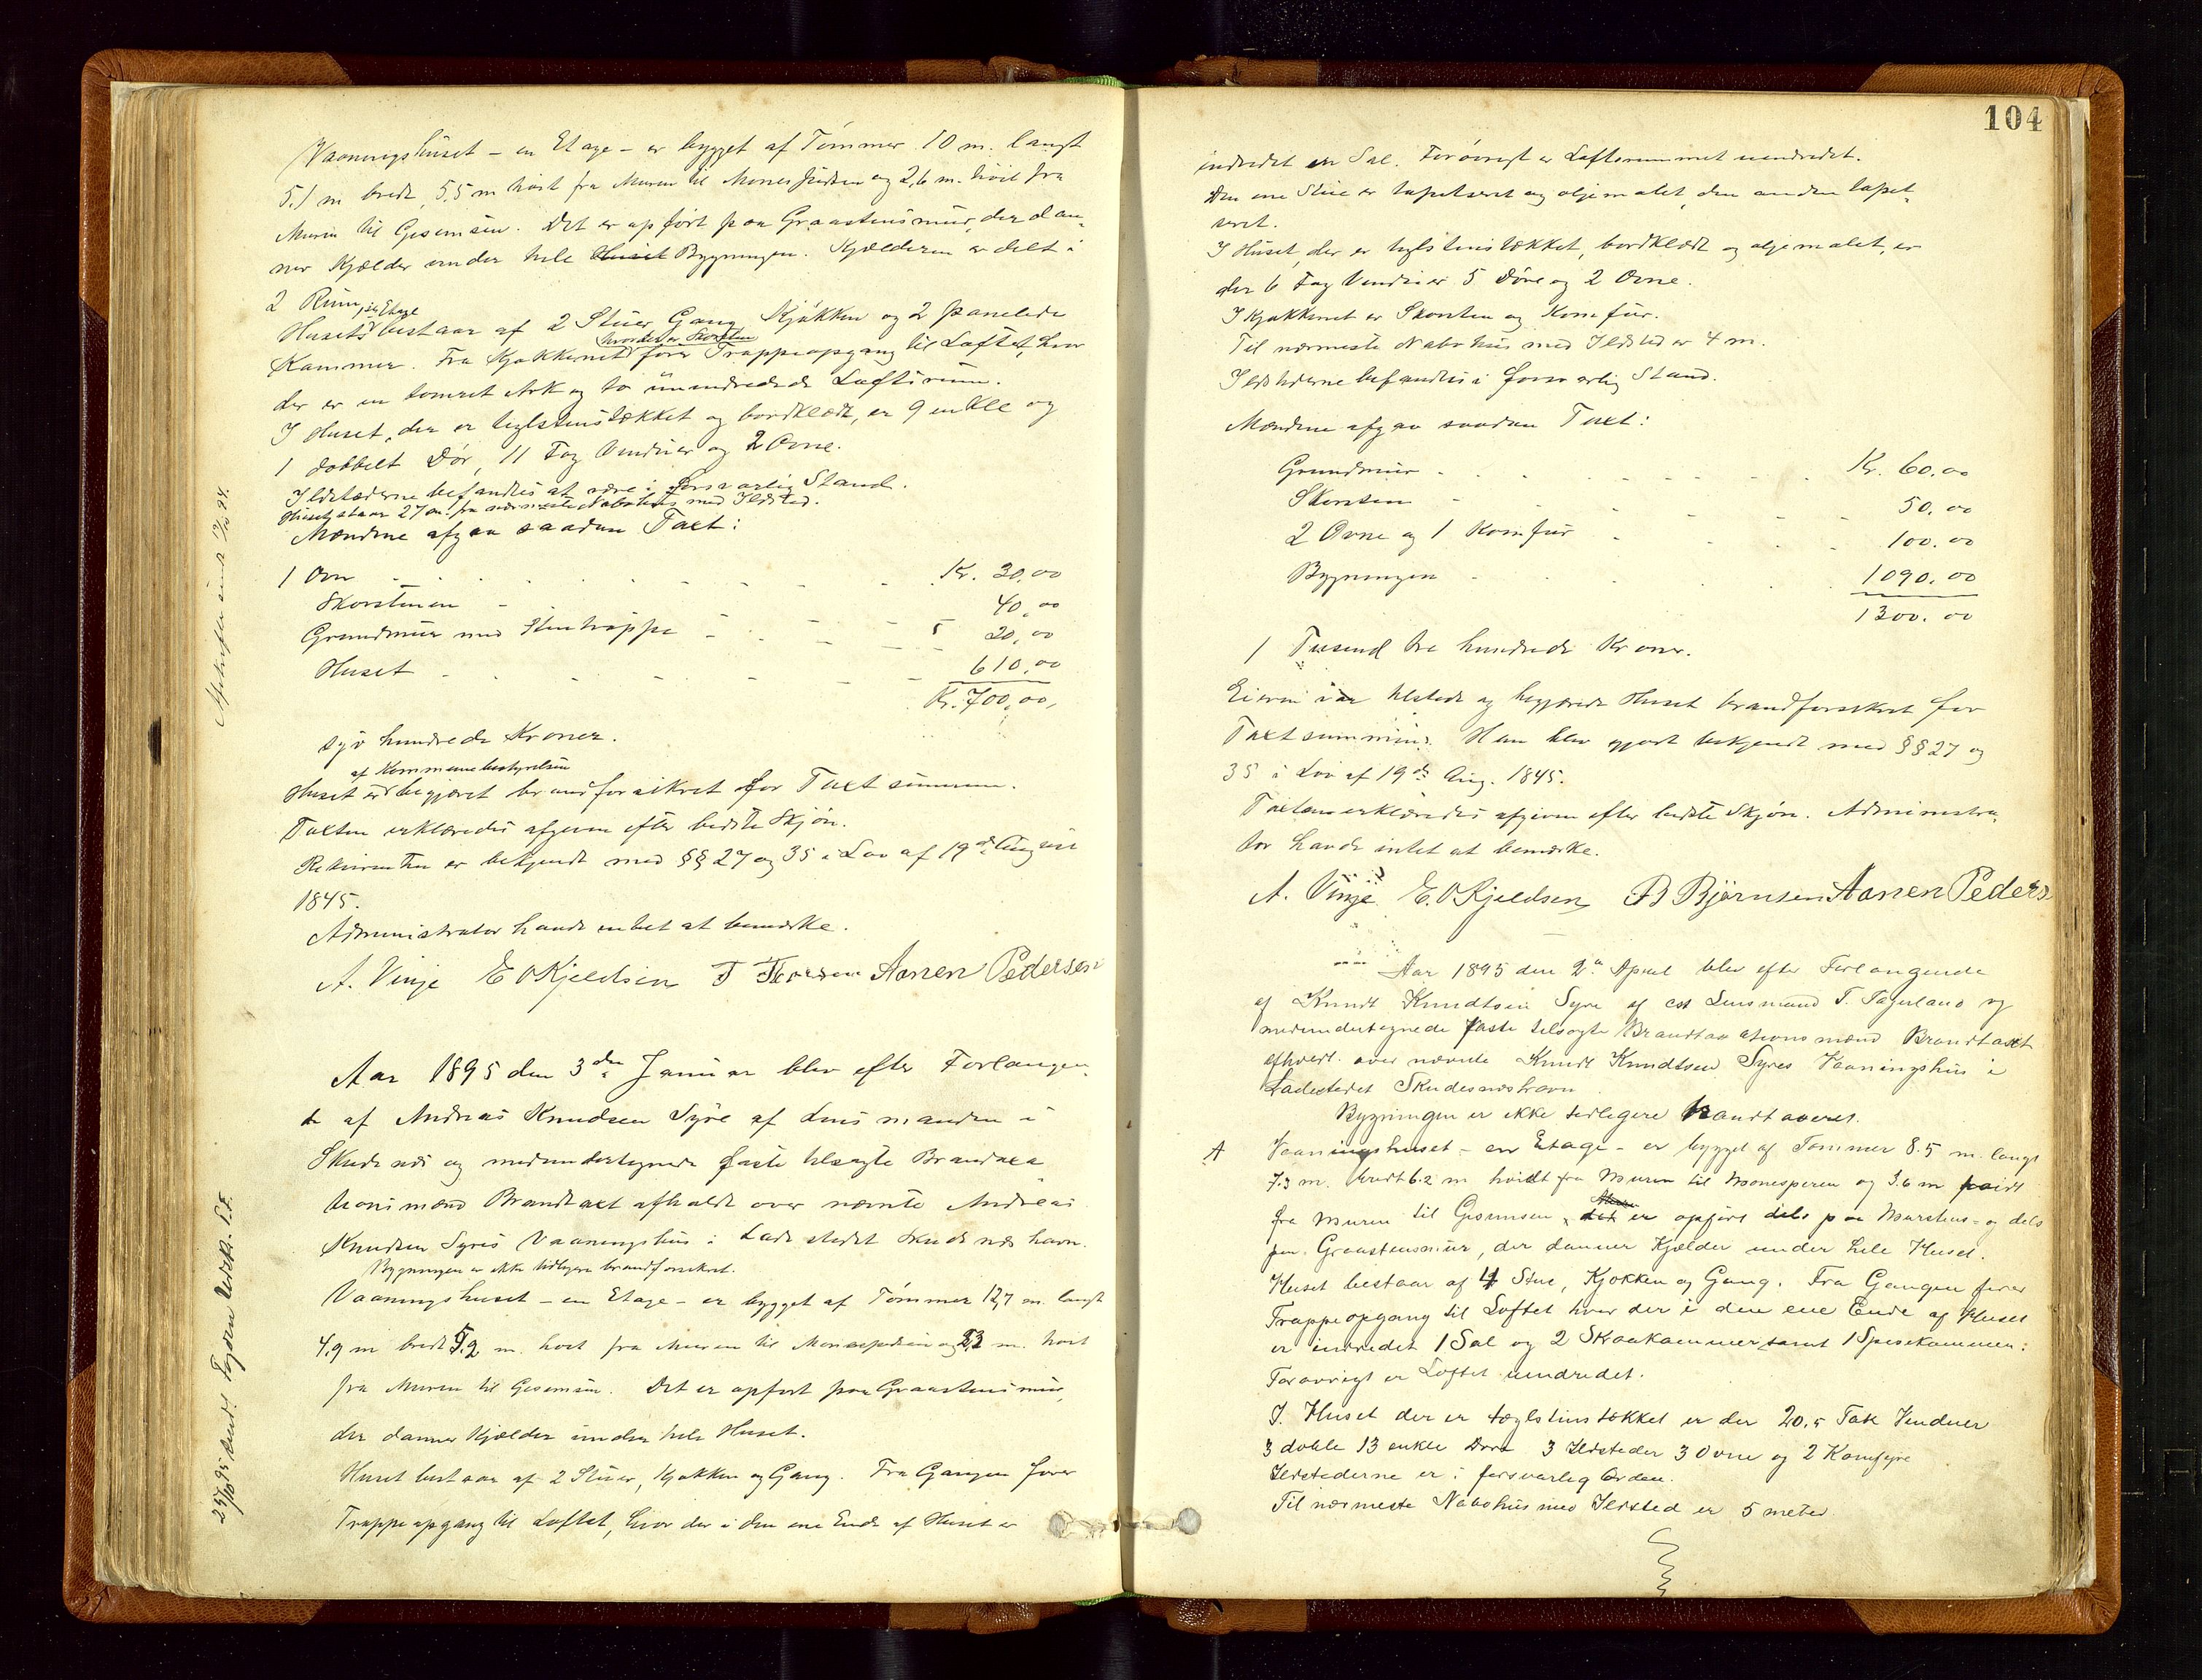 Vaaningshuset - en Etage - er bygget af Tømmer 10 m. langt
5.1 m bredt, 5,5 m høit fra Muren til Mønespidsen og 2,6 m. høit fra
Muren til Gesemsen. Det er opført paa Graastensmur, der dan-
ner Kjælder under hele Huset Bygningen. Kjælderen er delt i
2 Rum,
Husets 1ste Etage bestaar af 2 Stuer Gang Kjøkken og 2 panelede
Kammer. Fra Kjøkkenet hvor det er Skorsten fører Trappeopgang til Loftet, hvor
der er en tømret Ark og to uindredede Loftsrum.
I Huset, der er teglstenstækket og bordklædt, er 9 enkle og
1 dobbelt Dør, 11 Fag Vinduer og 2 Ovne.
Ildstæderne befandtes at være i forsvarlig Stand.
Huset staar 27 m. fra nærmeste Nabohus med Ildsted.
Mændene afgav saadan Taxt:
1 Ovn Kr. 30,00
Skorstenen 40,00
Grundmur med Stentrappe 20,00
Huset 610,00
Kr. 700,00,
syv hundrede Kroner.
af Kommunebestyrelsen
Huset er begjæret brandforsikret for Taxtsummen.
Taxten erklæredes afgiven efter bedste Skjøn.
Rekvirenten er bekjendt med §§ 27 og 35 i Lov af 19de August
1845.
Administrator havde intet at bemærke.
A. Vinje E O Kjeldsen T Aanen Pedersen
Aar 1895 den 3die Januar blev efter Forlangen-
de af Andreas Knudsen Syre af Lensmanden i
Skudenæs og medundertegnede faste tilsagte Brandtaxa-
tionsmænd Brandtaxt afholdt over nævnte Andreas
Knudsen Syres Vaaningshus i Ladestedet Skudenæshavn.
Bygningen er ikke tidligere brandforsikret.
Vaaningshuset - en Etage - er bygget af Tømmer 12,7 m. langt
4,9 m bredt 5,2 m. høit fra Muren til Mønespidsen og 2,3 m. høit
fra Muren til Gesemsen. Det er opført paa Graastensmur,
der danner Kjælder under hele Huset.
Huset bestaar af 2 Stuer, Kjøkken og Gang. Fra Gangen fører
Trappeopgang til Loftet, hvor der i den ene Ende af Huset er
104
indredet en Sal. Forøvrigt er Loftsrummet uindredet.
Den ene Stue er tapetseret og oljemalet, den anden tapet-
seret.
I Huset, der er teglstenstækket, bordklædt og oljemalet, er
der 6 Fag Vinduer 5 Døre og 2 Ovne.
I Kjøkkenet er Skorsten og Komfur.
Til nærmeste Nabohus med Ildsted er 4 m.
Ildstederne befandtes i forsvarlig Stand.
Mændene afgav saadan Taxt:
Grundmur Kr. 60.00
Skorsten 50.00
2 Ovne og 1 Komfur 100.00
Bygningen 1090.00
1300.00
1 Tusend tre hundrede Kroner.
Eieren var tilstede og begjærede Huset brandforsikret for
Taxtsummen. Han blev gjort bekjendt med §§ 27 og
35 i Lov af 19de Aug. 1845.
Taxten erklæredes afgiven efter bedste Skjøn. Administra-
tor havde intet at bemærke.
A. Vinje E. O Kjeldsen B Bjørnsen Aanen Peders
Aar 1895 den 2den April blev efter Forlangende
af Knudt Knudtsen Syre af cst Lensmand T. og
medundertegnede faste tilsagte Brandtaxationsmænd Brandtaxt
afholdt over nævnte Knudt Knudtsen Syres Vaaningshus i
Ladestedet Skudesnæshavn
Bygningen er ikke tidligere brandtaxeret.
A Vaaningshuset - en Etage - er bygget af Tømmer 8.5 m. langt
7.3 m. bredt 6.2 m høidt fra Muren til Mønespiren og 3.6 m høidt
fra Muren til Gesimsen, det er opført dels paa Murstens- og dels
paa Graastensmur, der danner Kjælder under hele Huset.
Huset bestaar af 4 Stue, Kjøkken og Gang. Fra Gangen fører
Trappeopgang til Loftet hvor der i den ene Ende af Huset
er indredet 1 Sal og 2 Skraakammer samt 1 Spisekammer:
Forøvrigt er Loftet uindredet.
I Huset der er tæglstenstækket er der 20,5 Fak Vinduer
3 doble 13 enkle Døre 3 Ildsteder 3 Ovne og 2 Komfyre
Ildstederne er i forsvarlig Orden.
Til nærmeste Nabohus med Ildsted er 5 meter